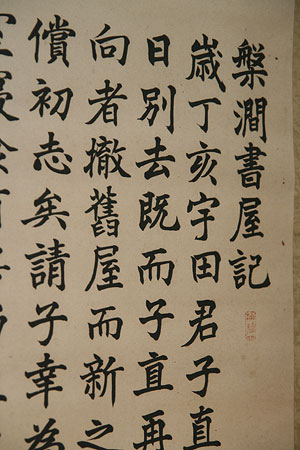 槃澗書屋記
歲丁亥宇田君子直
日別去既而子直再
向者撤舊屋而新之
償初志矣請子幸為